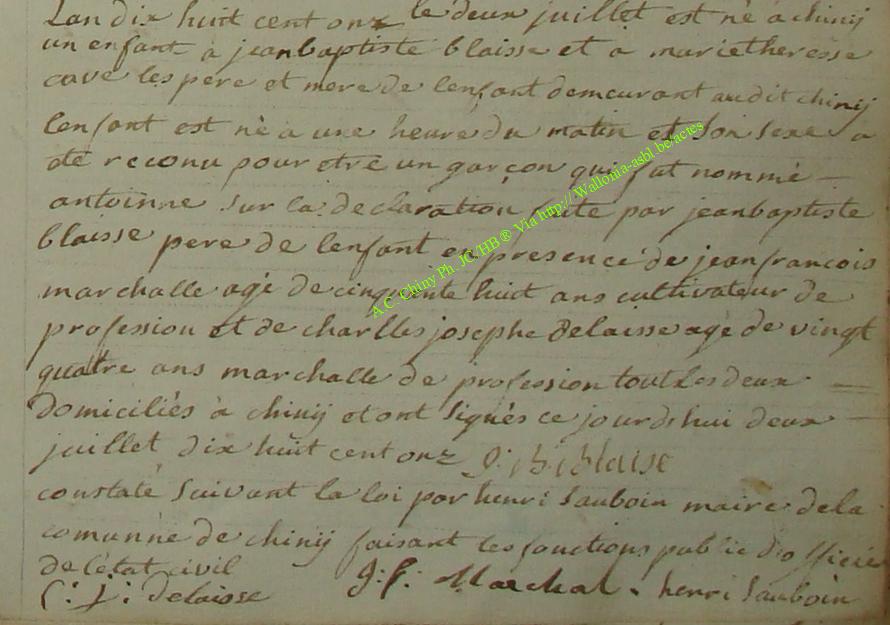 Lan dix huit cent onze le deux juillet est né a chinij
un enfant a jeanbaptiste blaisse et a marietheresse
cave les pere et mere de lenfant demeurant audit chinij
lenfant est né a une heure du matin et son sexe a
été reconu pour etre un garçon qui fut nommé
antoinne sur la declaration faite par jeanbaptiste
blaisse pere de lenfant en presence de jeanfrancois
marchalle agé de cinquente huit ans cultivateur de
profession et de charlles josephe delaisse agé de vingt
quatre ans marchalle de profession tout les deux
domiciliés à chinij et ont signés ce jourdshui deux
juillet dix huit cent onze J: B: Blaise
constaté suivant la loi par henri sauboin maire de la
comunne de chinij faisant les fonctions public d'officier
de l'état civil
C: J: delaisse J: f: Marchal . henri Sauboin
A.C. Chiny Ph. JC/HB® Via http://Wallonia-asbl.be/actes